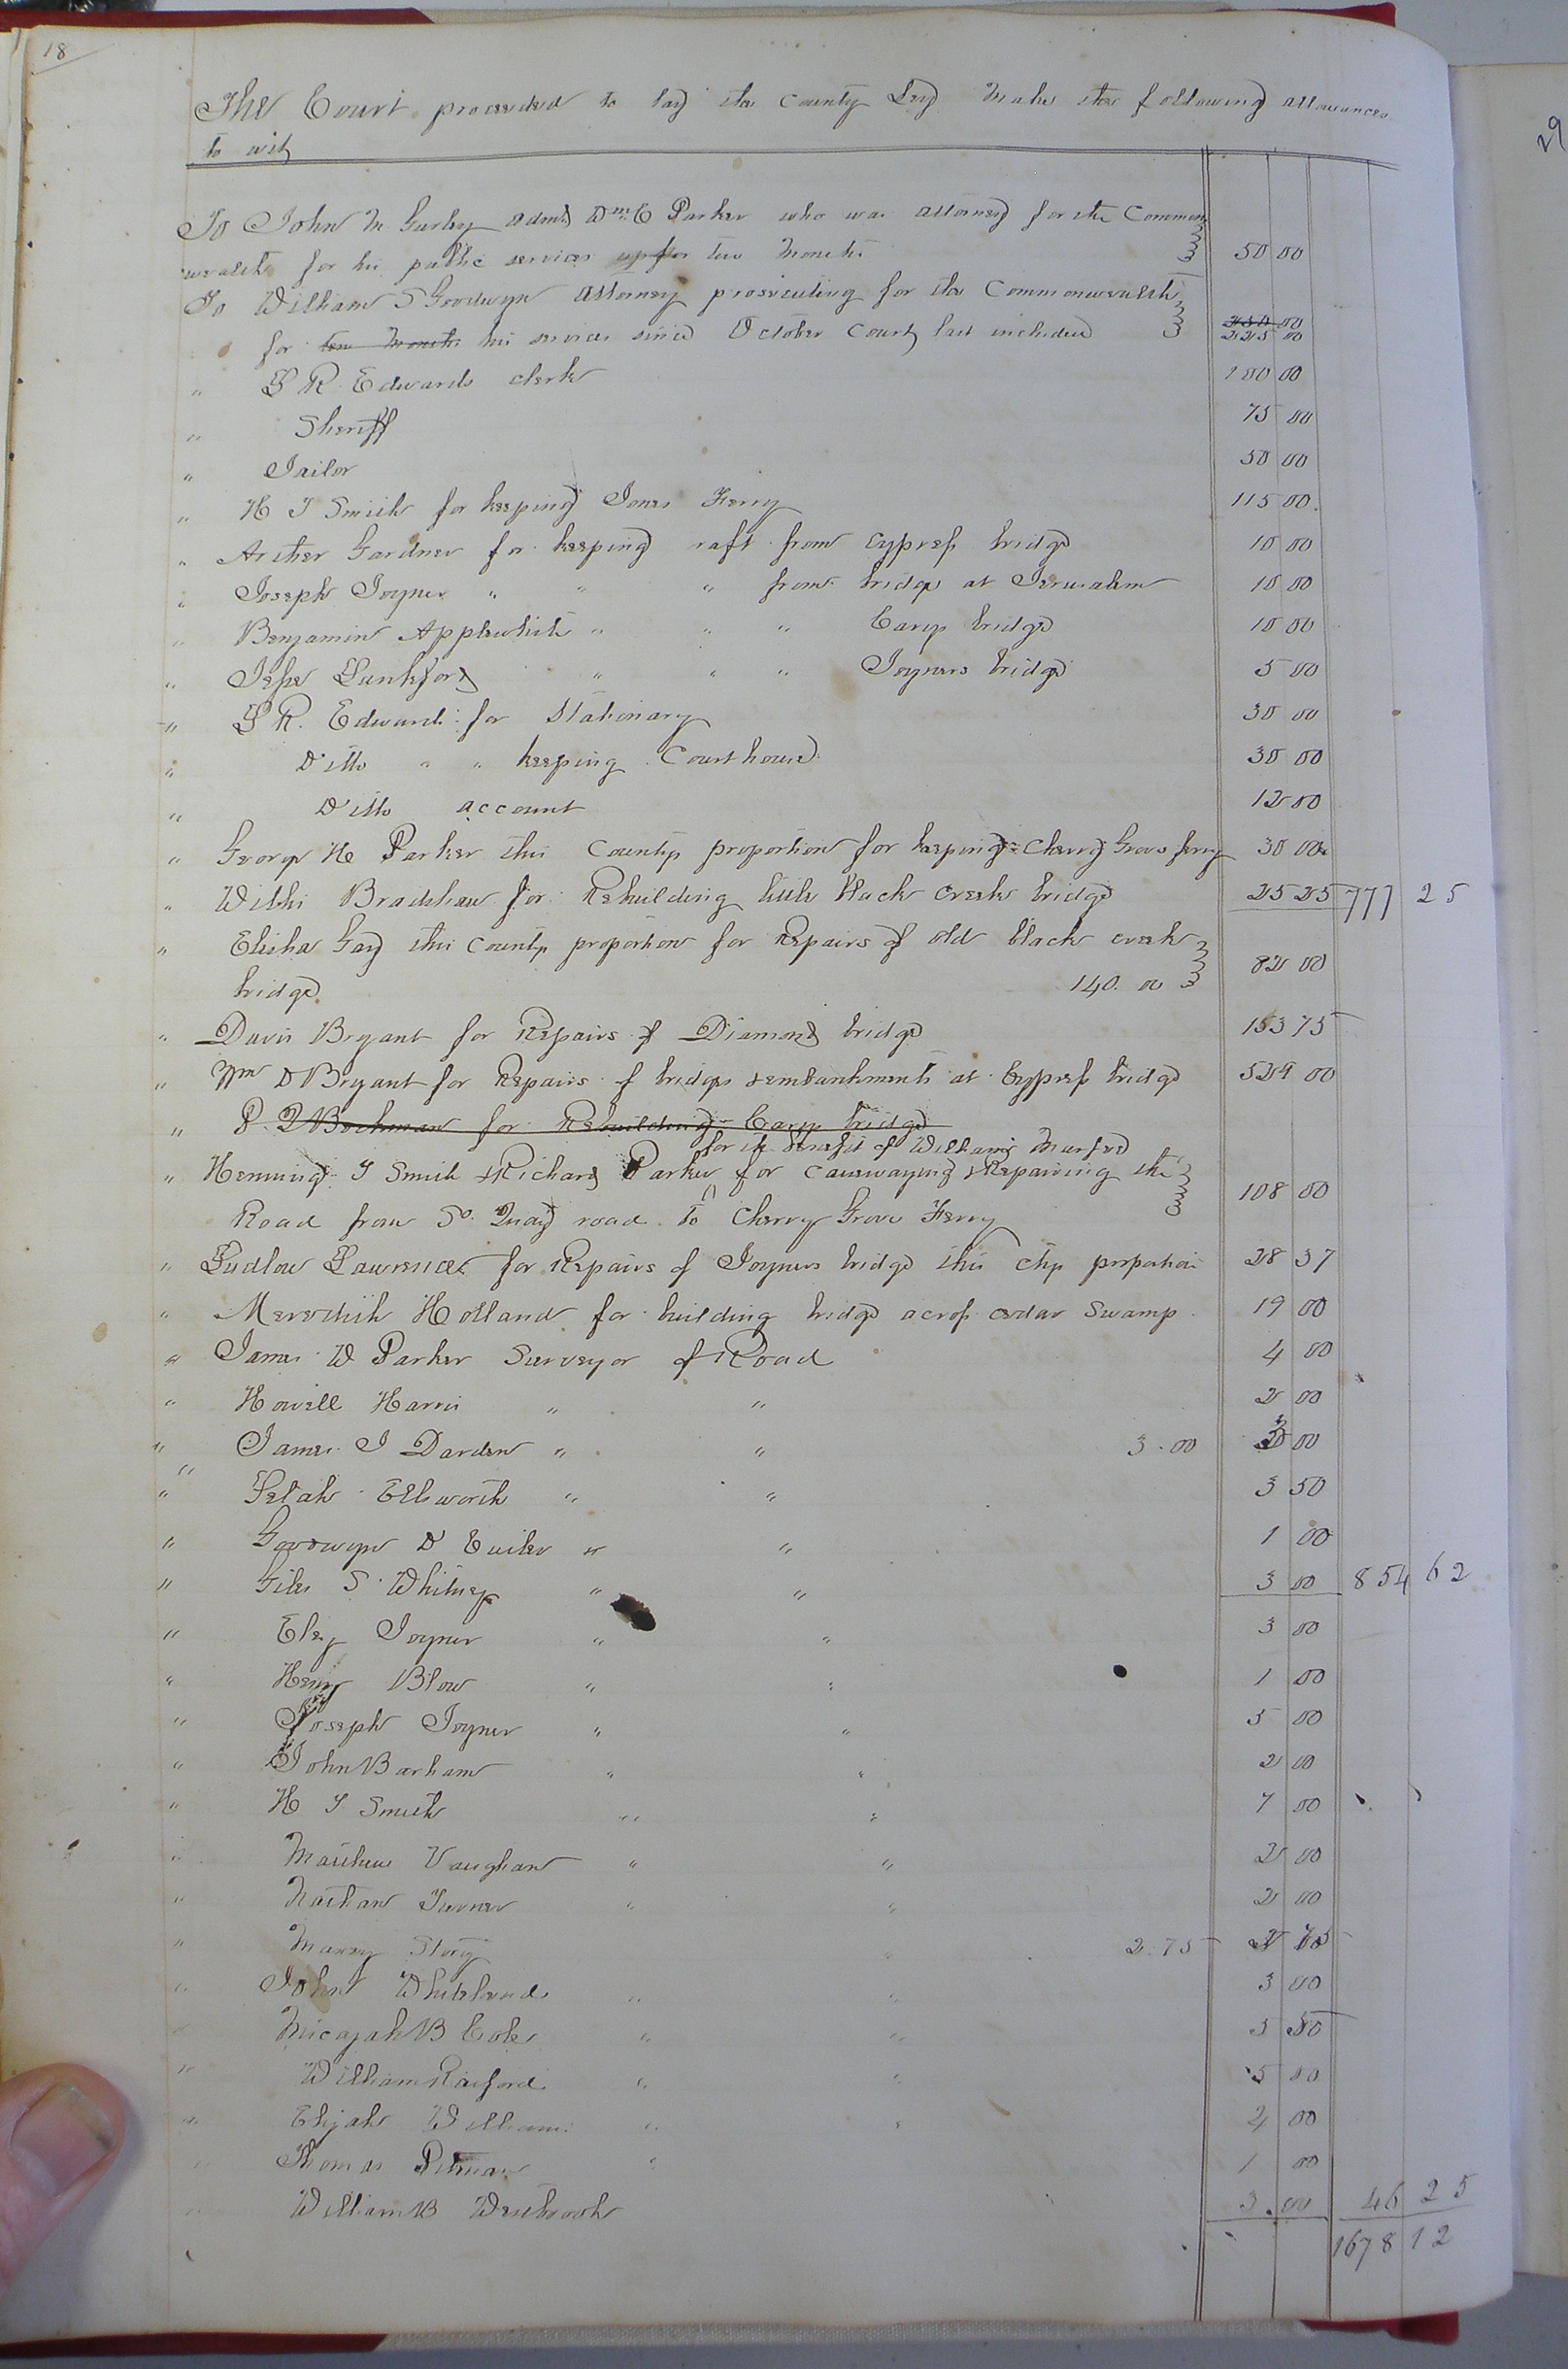 18
29
The Court proceeded to lay the County Levy Make the following allowances
to wit
To John M Gurley adm.r W.m C Parker who was Attorney for the Common
wealth for his public services up for two Months 50 00
To William S Goodwyn Attorney prosecuting for the Commonwealth
for ten Months his services since October Court last included 250 00 225 00
" L R Edwards clerk 100 00
" Sheriff 75 00
" Jailor 50 00
" H J Smith for keeping Jones Ferry 115 00
" Archer Gardner for keeping raft from Cypress bridge 10 00
" Joseph Joyner " " " from bridge at Jerusalem 10 00
" Benjamin Applewhite " " " Carys bridge 10 00
" Jesse Lankford " " " Joyners bridge 5 00
" L R. Edwards for Stationary 30 00
" Ditto " " keeping Courthouse 30 00
" Ditto account 12 00
" George H Parker this Countys proportion for keeping Cherry Grove ferry 30 00
" Willis Bradshaw for Rebuilding little black creek bridge 25 25 777 25
" Elisha Gay this Countys proportion for Repairs of old black creek
bridge 140. 00 82 00
" Davis Bryant for Repairs of Diamond bridge 153 75
" Wm D Bryant for Repairs of bridges & embankments at Cypress bridge 529 00
" for Rebuilding Carys bridge
for the benefit of Williams Murford
" Henning J Smith & Richard Parker for Causwaying & Repairing the
Road from So. Quay road to Cherry Grove Ferry 108 00
" Ludlow Lawrence for Repairs of Joyners bridge this Ctys proportion 28 37
" Meredith Holland for building bridge across cedar Swamp 19 00
" James W Parker Surveyor of Road 4 00
" Howell Harris " " 2 00
" James J Darden " " 3.00 3 00
" Selah Ellsworth " " 3 50
" Goodwyn D " " 1 00
" Giles S Whitney " " 3 00 854 62
" Eley Joyner " " 3 00
" Henry Blow " " 1 00
" Joseph Joyner " " 5 00
" John Barham " " 2 00
" H J Smith " " 7 00
" Matthew Vaughan " " 2 00
" Nathan Turner " " 2 00
" Story " 2.75 2 75
" John Whitehead " " 3 00
" Micajah B Cole " " 3 50
" William Raiford " " 5 00
" Elijah Williams " " 2 00
" Thomas Pitman " 1 00
" William B Westbrook 3.00 46 25
1678 12